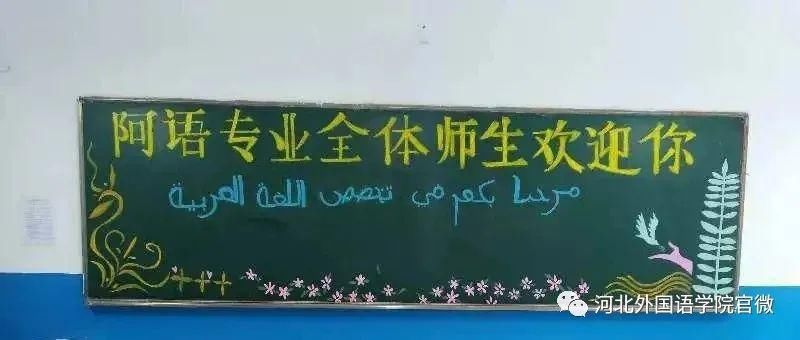 阿语专业全体师生欢迎你
مرحبا بكم في تخصص اللغة العربية
河北外国语学院官微